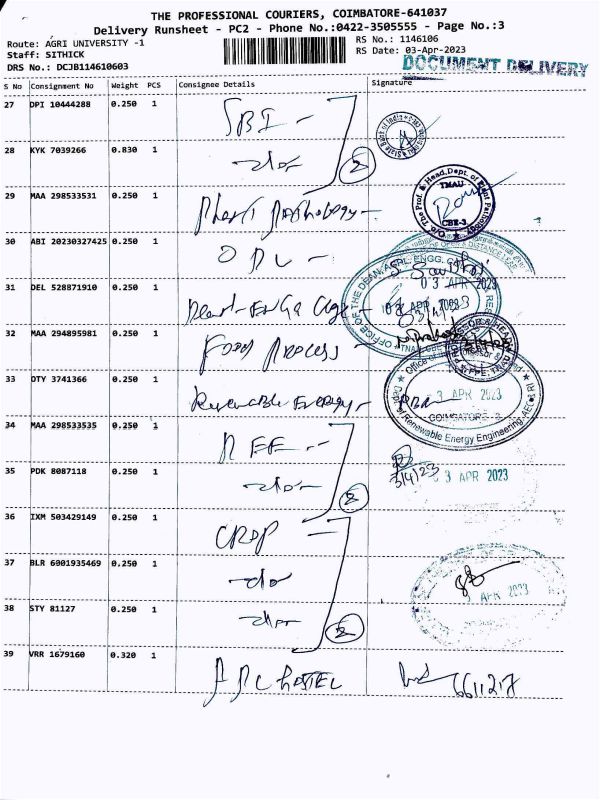 THE PROFESSIONAL COURIERS, COIMBATORE-641037
Delivery Runsheet - PC2 - Phone No.:0422-3505555 - Page No.:3
Route: AGRI UNIVERSITY -1 RS No.: 1146106
Staff: SITHICK RS Date: 03-Apr-2023
DRS No.: DCJB114610603 DOCUMENT DELIVERY
S No Consignment No Weight PCS Consignee Details Signature
27 DPI 10444288 0.250 1 SBI -
28 KYK 7039266 0.830 1 -do- 2
29 MAA 298533531 0.250 1 Plant Pathology -
30 ABI 20230327425 0.250 1 ODL -
31 DEL 528871910 0.250 1 03 APR 2023
32 MAA 294895981 0.250 1 Food Process -
33 OTY 3741366 0.250 1 Renewable Energy - 3 APR 2023
COIMBATORE - 3
Dept. of Renewable Energy Engineering, AEC & RI
34 MAA 298533535 0.250 1
35 PDK 8087118 0.250 1 -do- 2 3/4/23 03 APR 2023
36 IXM 503429149 0.250 1 CROP -
37 BLR 6001935469 0.250 1 -do- 3 APR 2023
38 STY 81127 0.250 1 -do- 2
39 VRR 1679160 0.320 1 HOSTEL 6611217